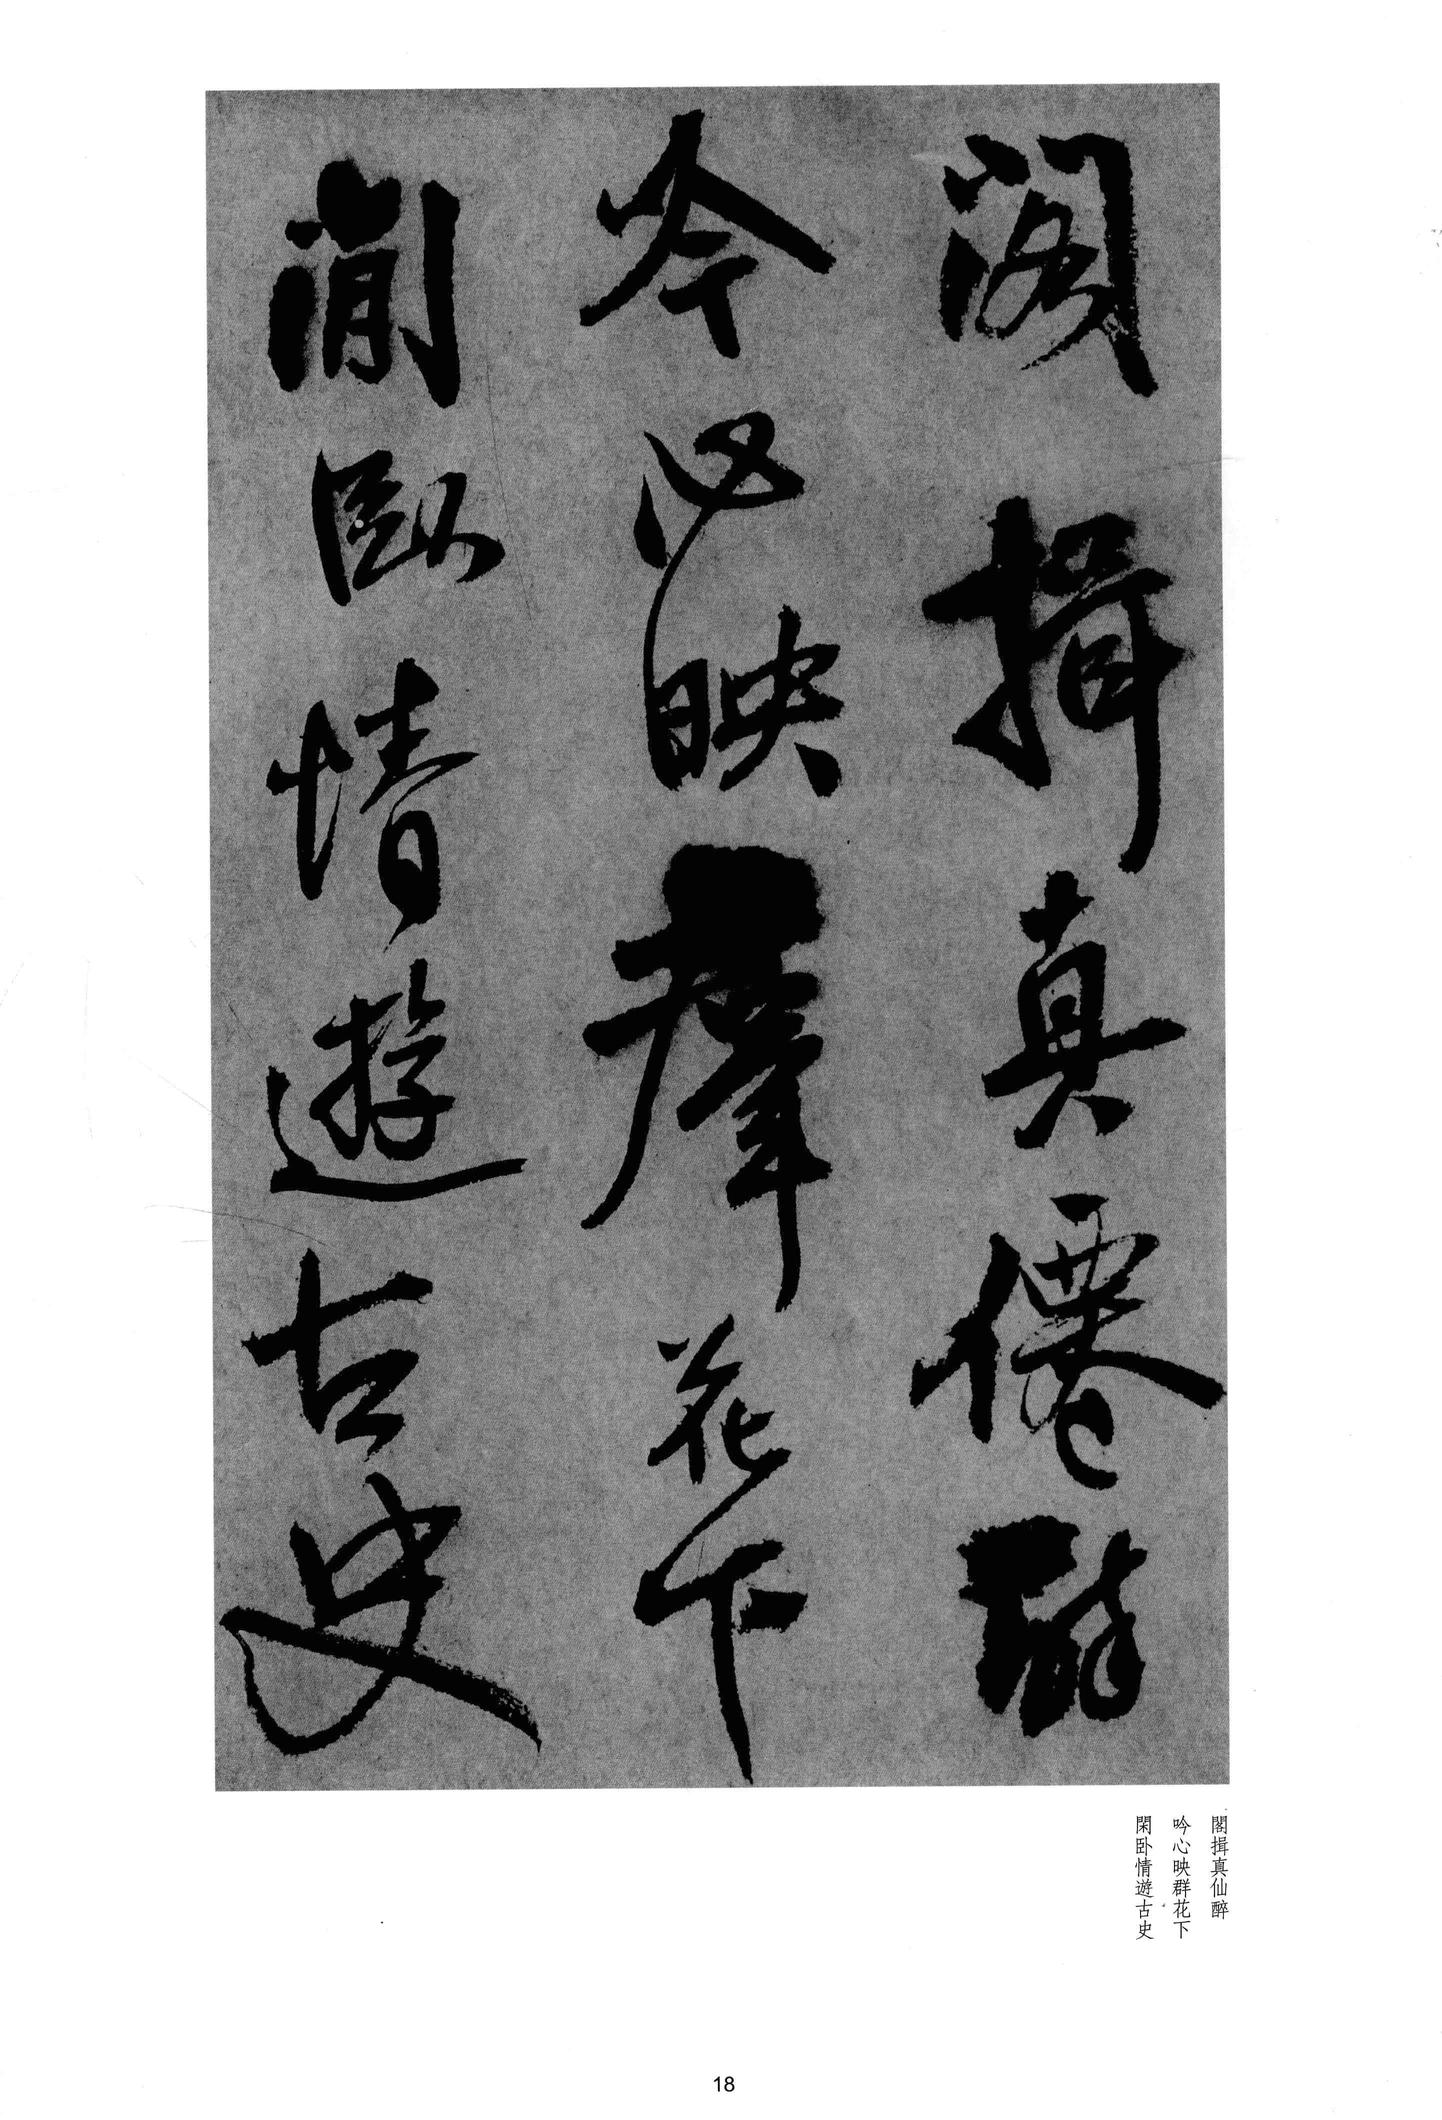 閣揖真僊醉
吟心映羣花下
閒臥情遊古史
閣揖真仙醉
吟心映群花下
閑卧情遊古史
18